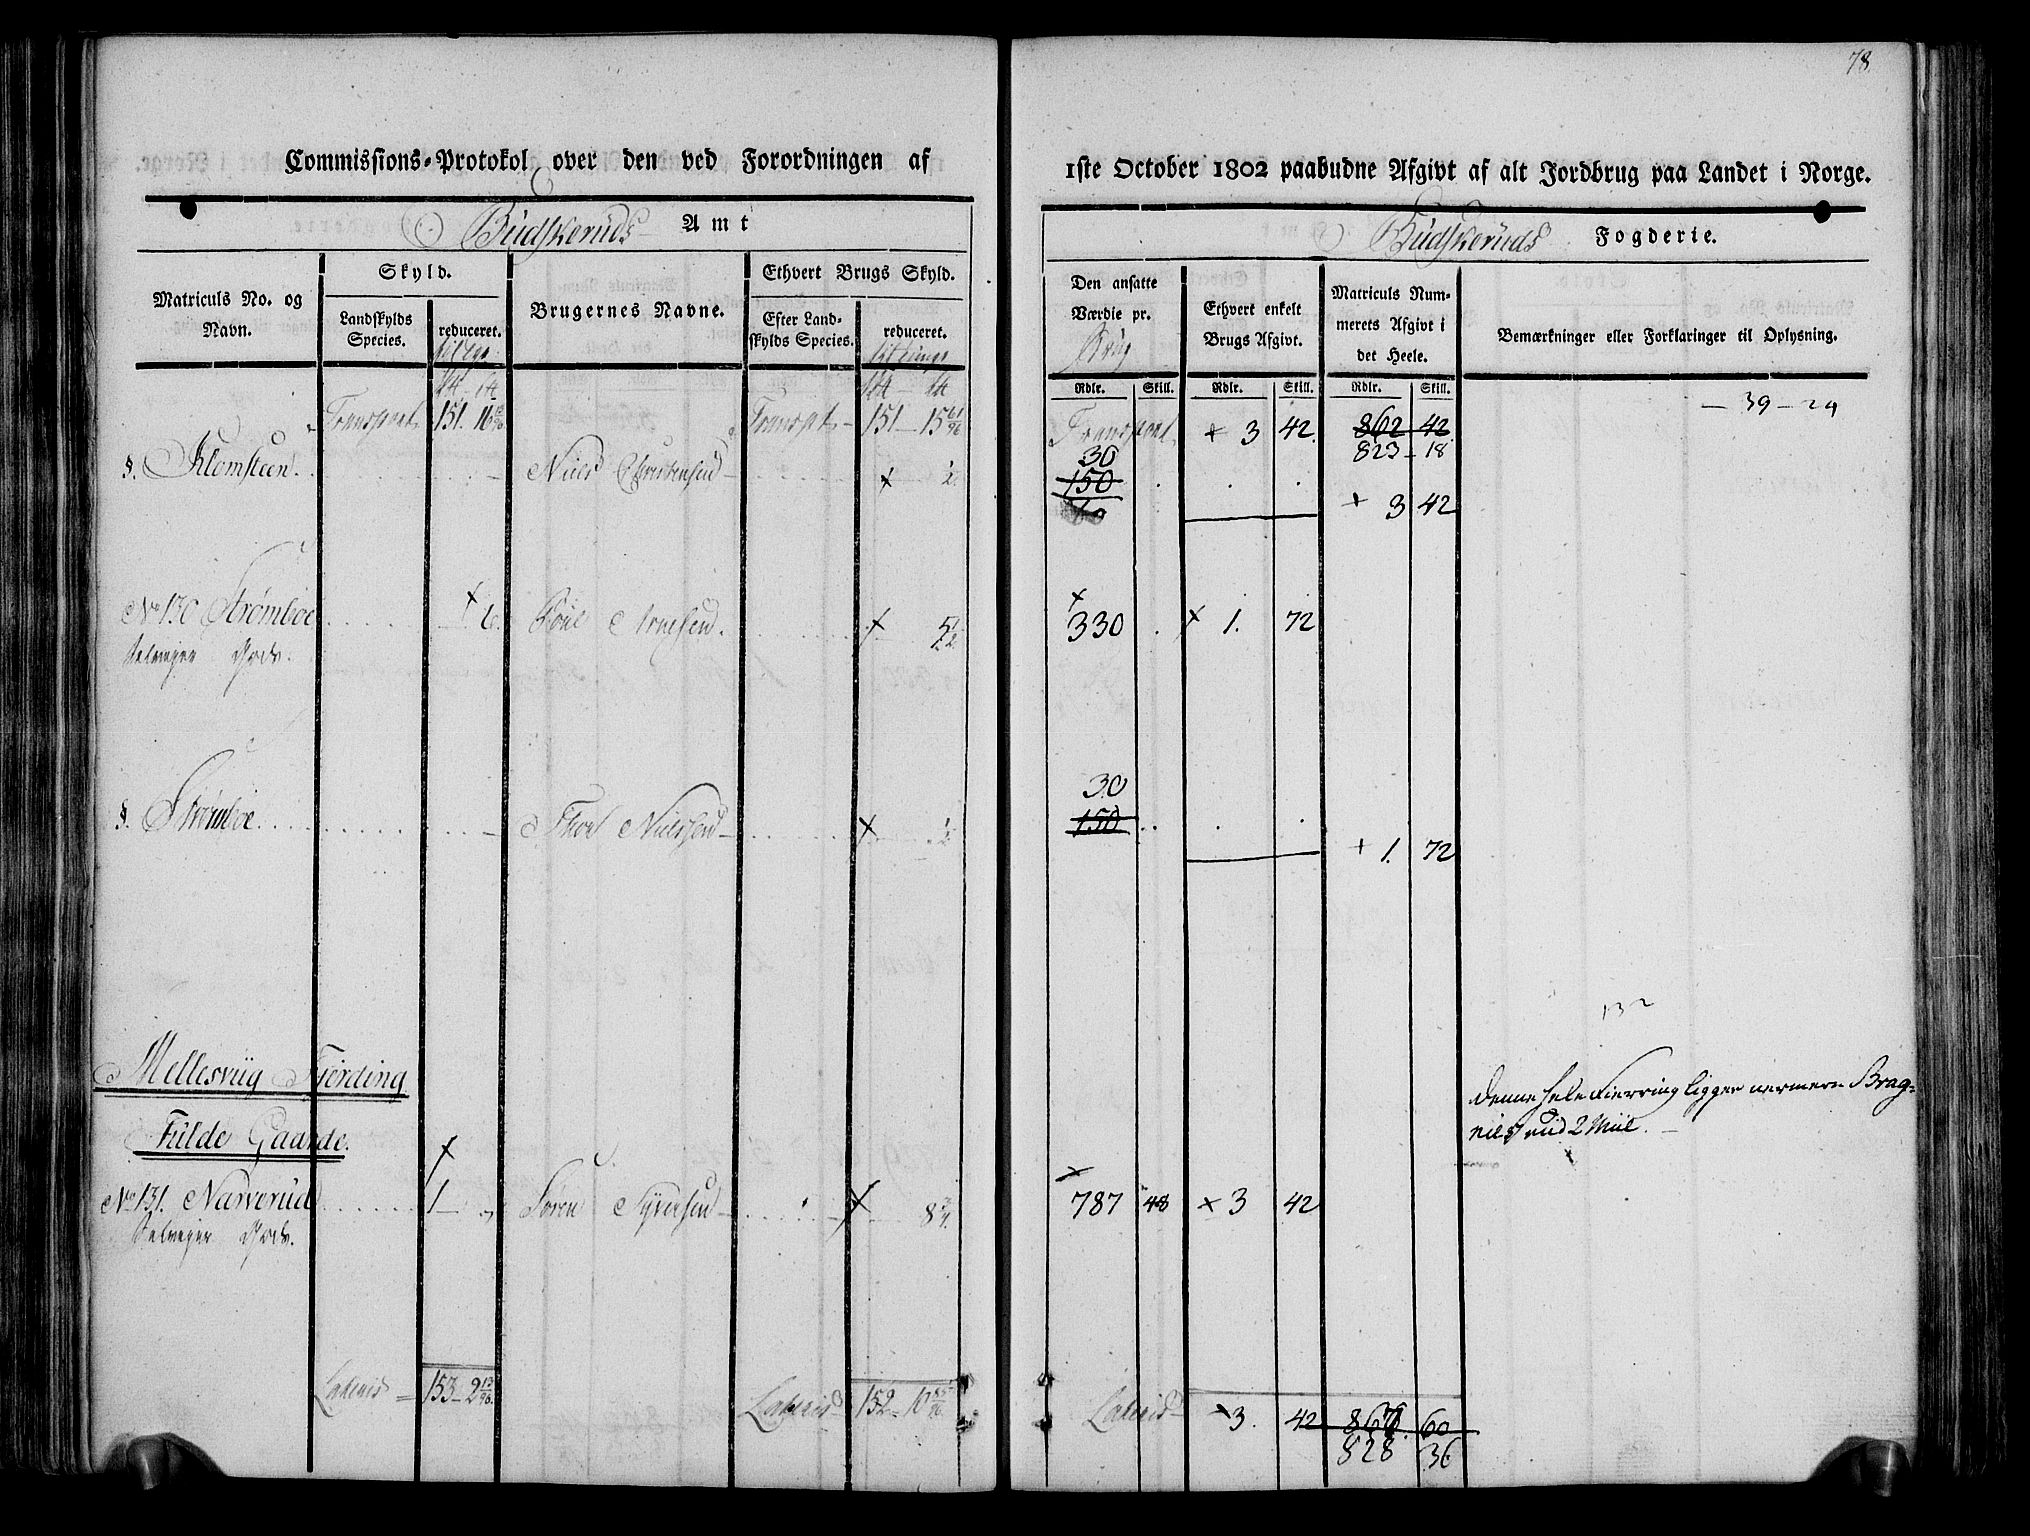 78.
Commissions-Protokol over den ved Forordningen af
1ste October 1802 paabudne Afgivt af alt Jordbrug paa Landet i Norge.
Budskeruds Amt
Budskeruds Fogderie.
Matriculs No. og Navn.
Skyld.
Landskylds Species.
reduceret.
Brugernes Navne.
Ethvert Brugs Skyld.
Efter Landskylds Species.
reduceret.
Den ansatte Værdie pr. Brug
Ethvert enkelt Brugs Afgivt.
Matriculs Nummerets Afgivt i det Heele.
Bemærkninger eller Forklaringer til Oplysning.
Rdlr. Skill. Rdlr. Skill. Rdlr. Skill.
Transport 151 16 13/96 Transpt 151 15 61/96 Transport + 3 42. 862 42
823 - 18
- 39 - 24
§. Klomsteen. Niels Christensen + 1/2. 30
150
+ 3 42
No 130 Strømboe + 6. Poul Arnesen. + 5 1/2. + 330 + 1. 72
Selveyer Gods.
§. Strømboe. Thor Nielsen + 1/2 30
150
+ 1. 72
132
Mellesviig Fierding
Denne hele Fierring ligger nermere Bragnæs end 2 Miil.
Fulde Gaarde.
No 131. Narverud + 1 - „ Søren Syversen + 8 3/4. + 787 48 + 3 42
Selveyer Gods.
Lateris 153 - 2 13/96. Lateris 152 - 10 85/96 Lateris + 3. 42 867. 60
828 36